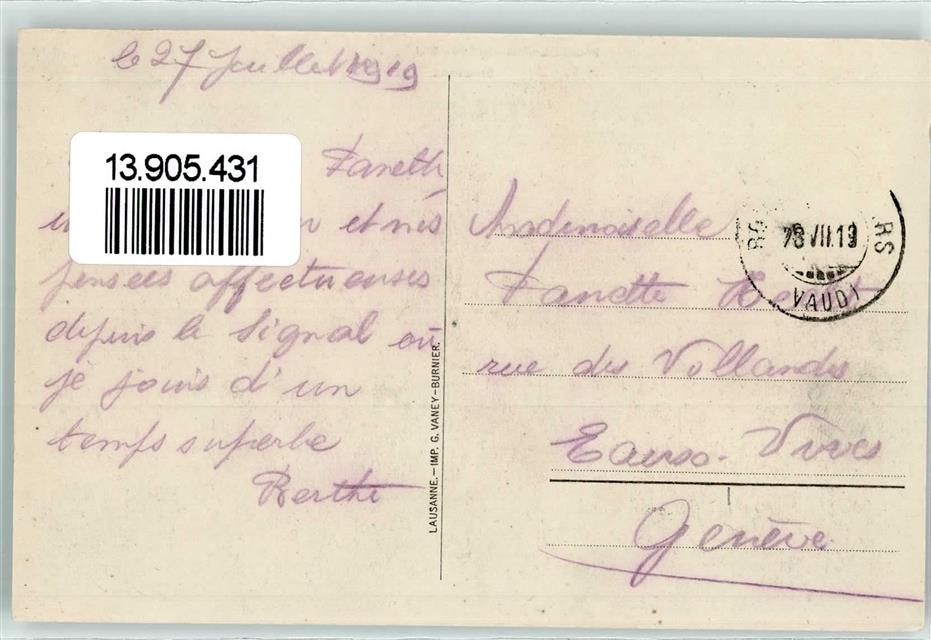 le 27 Juillet 1919
13.905.431
Fanette
et mes
pensées affectueuses
depuis le Signal où
je jouis d'un
temps superbe
Berthe
LAUSANNE.—IMP. G. VANEY-BURNIER.
Mademoiselle
Fanette
rue des Vollandes
Eaux-Vives
Genève
28 VII.19
(VAUD)